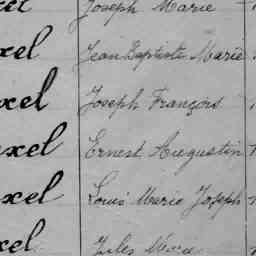 xel Joseph Marie
xel Jean Baptiste Marie
xel Joseph François
xel Ernest Augustin
xel Louis Marie Joseph
xel Jules Marie